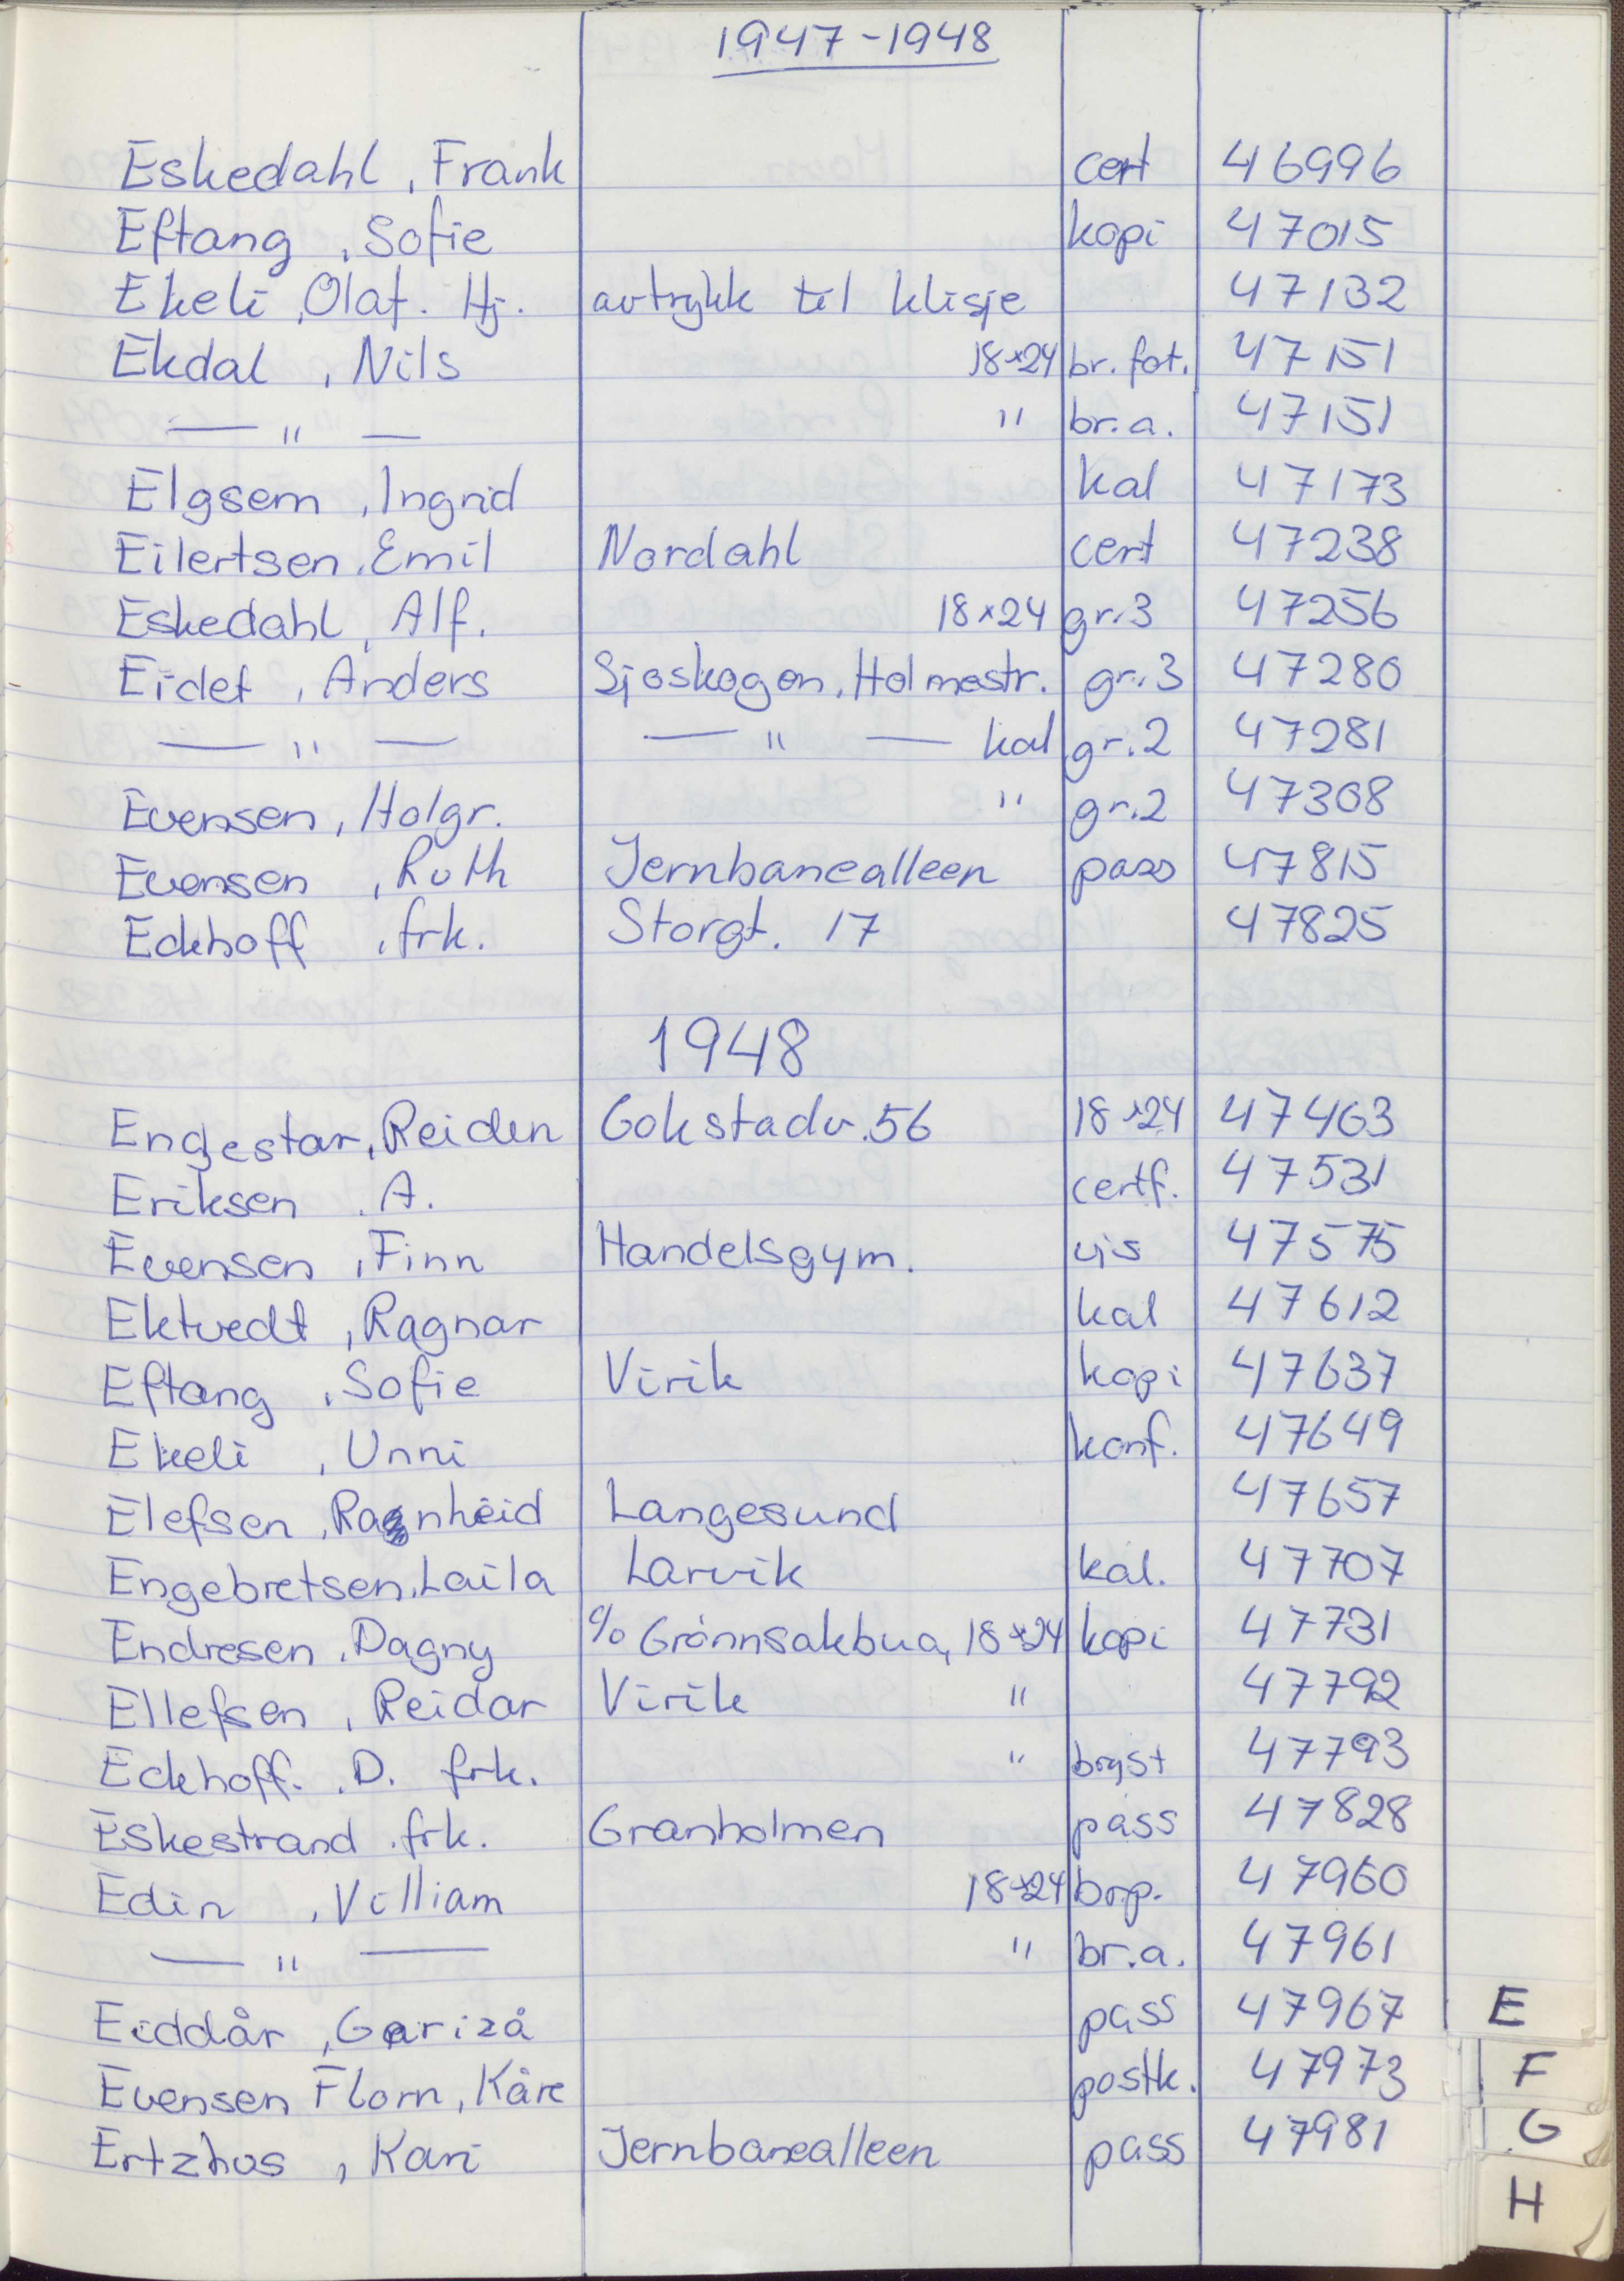 1947-1948
Eskedahl, Frank cert 46996
Eftang, Sofie kopi 47015
Ekeli, Olaf. Hj. avtrykk til klisje 47132
Ekdal, Nils 18x24 br. fot. 47151
— " — " br.a. 47151
Elgsem, Ingrid kal 47173
Eilertsen, Emil Nordahl cert 47238
Eskedahl, Alf. 18x24 gr.3 47256
Eidet, Anders Sjøskogen, Holmestr. gr.3 47280
— " — — " — kal gr.2 47281
Evensen, Holgr. " gr.2 47308
Evensen, Ruth Jernbanealleen pass 47815
Eckhoff, frk. Storgt. 17 47825
1948
Engestar, Reiden Gokstadv.56 18x24 47463
Eriksen, A. certf. 47531
Evensen, Finn Handelsgym. vis 47575
Ektvedt, Ragnar kal 47612
Eftang, Sofie Virik kopi 47637
Ekeli, Unni konf. 47649
Elefsen, Ragnheid Langesund 47657
Engebretsen, Laila Larvik kal. 47707
Endresen, Dagny c/o Grønnsakbua, 18x24 kopi 47731
Ellefsen, Reidar Virik " 47792
Eckhoff. D. frk. " bryst 47793
Eskestrand, frk. Granholmen pass 47828
Edin, Villiam 18x24 br.p. 47960
— " — " br.a. 47961
Eiddår, Garizå pass 47967
E
Evensen Florn, Kåre postk. 47973
F
Ertzhus, Kari Jernbanealleen pass 47981
G
H